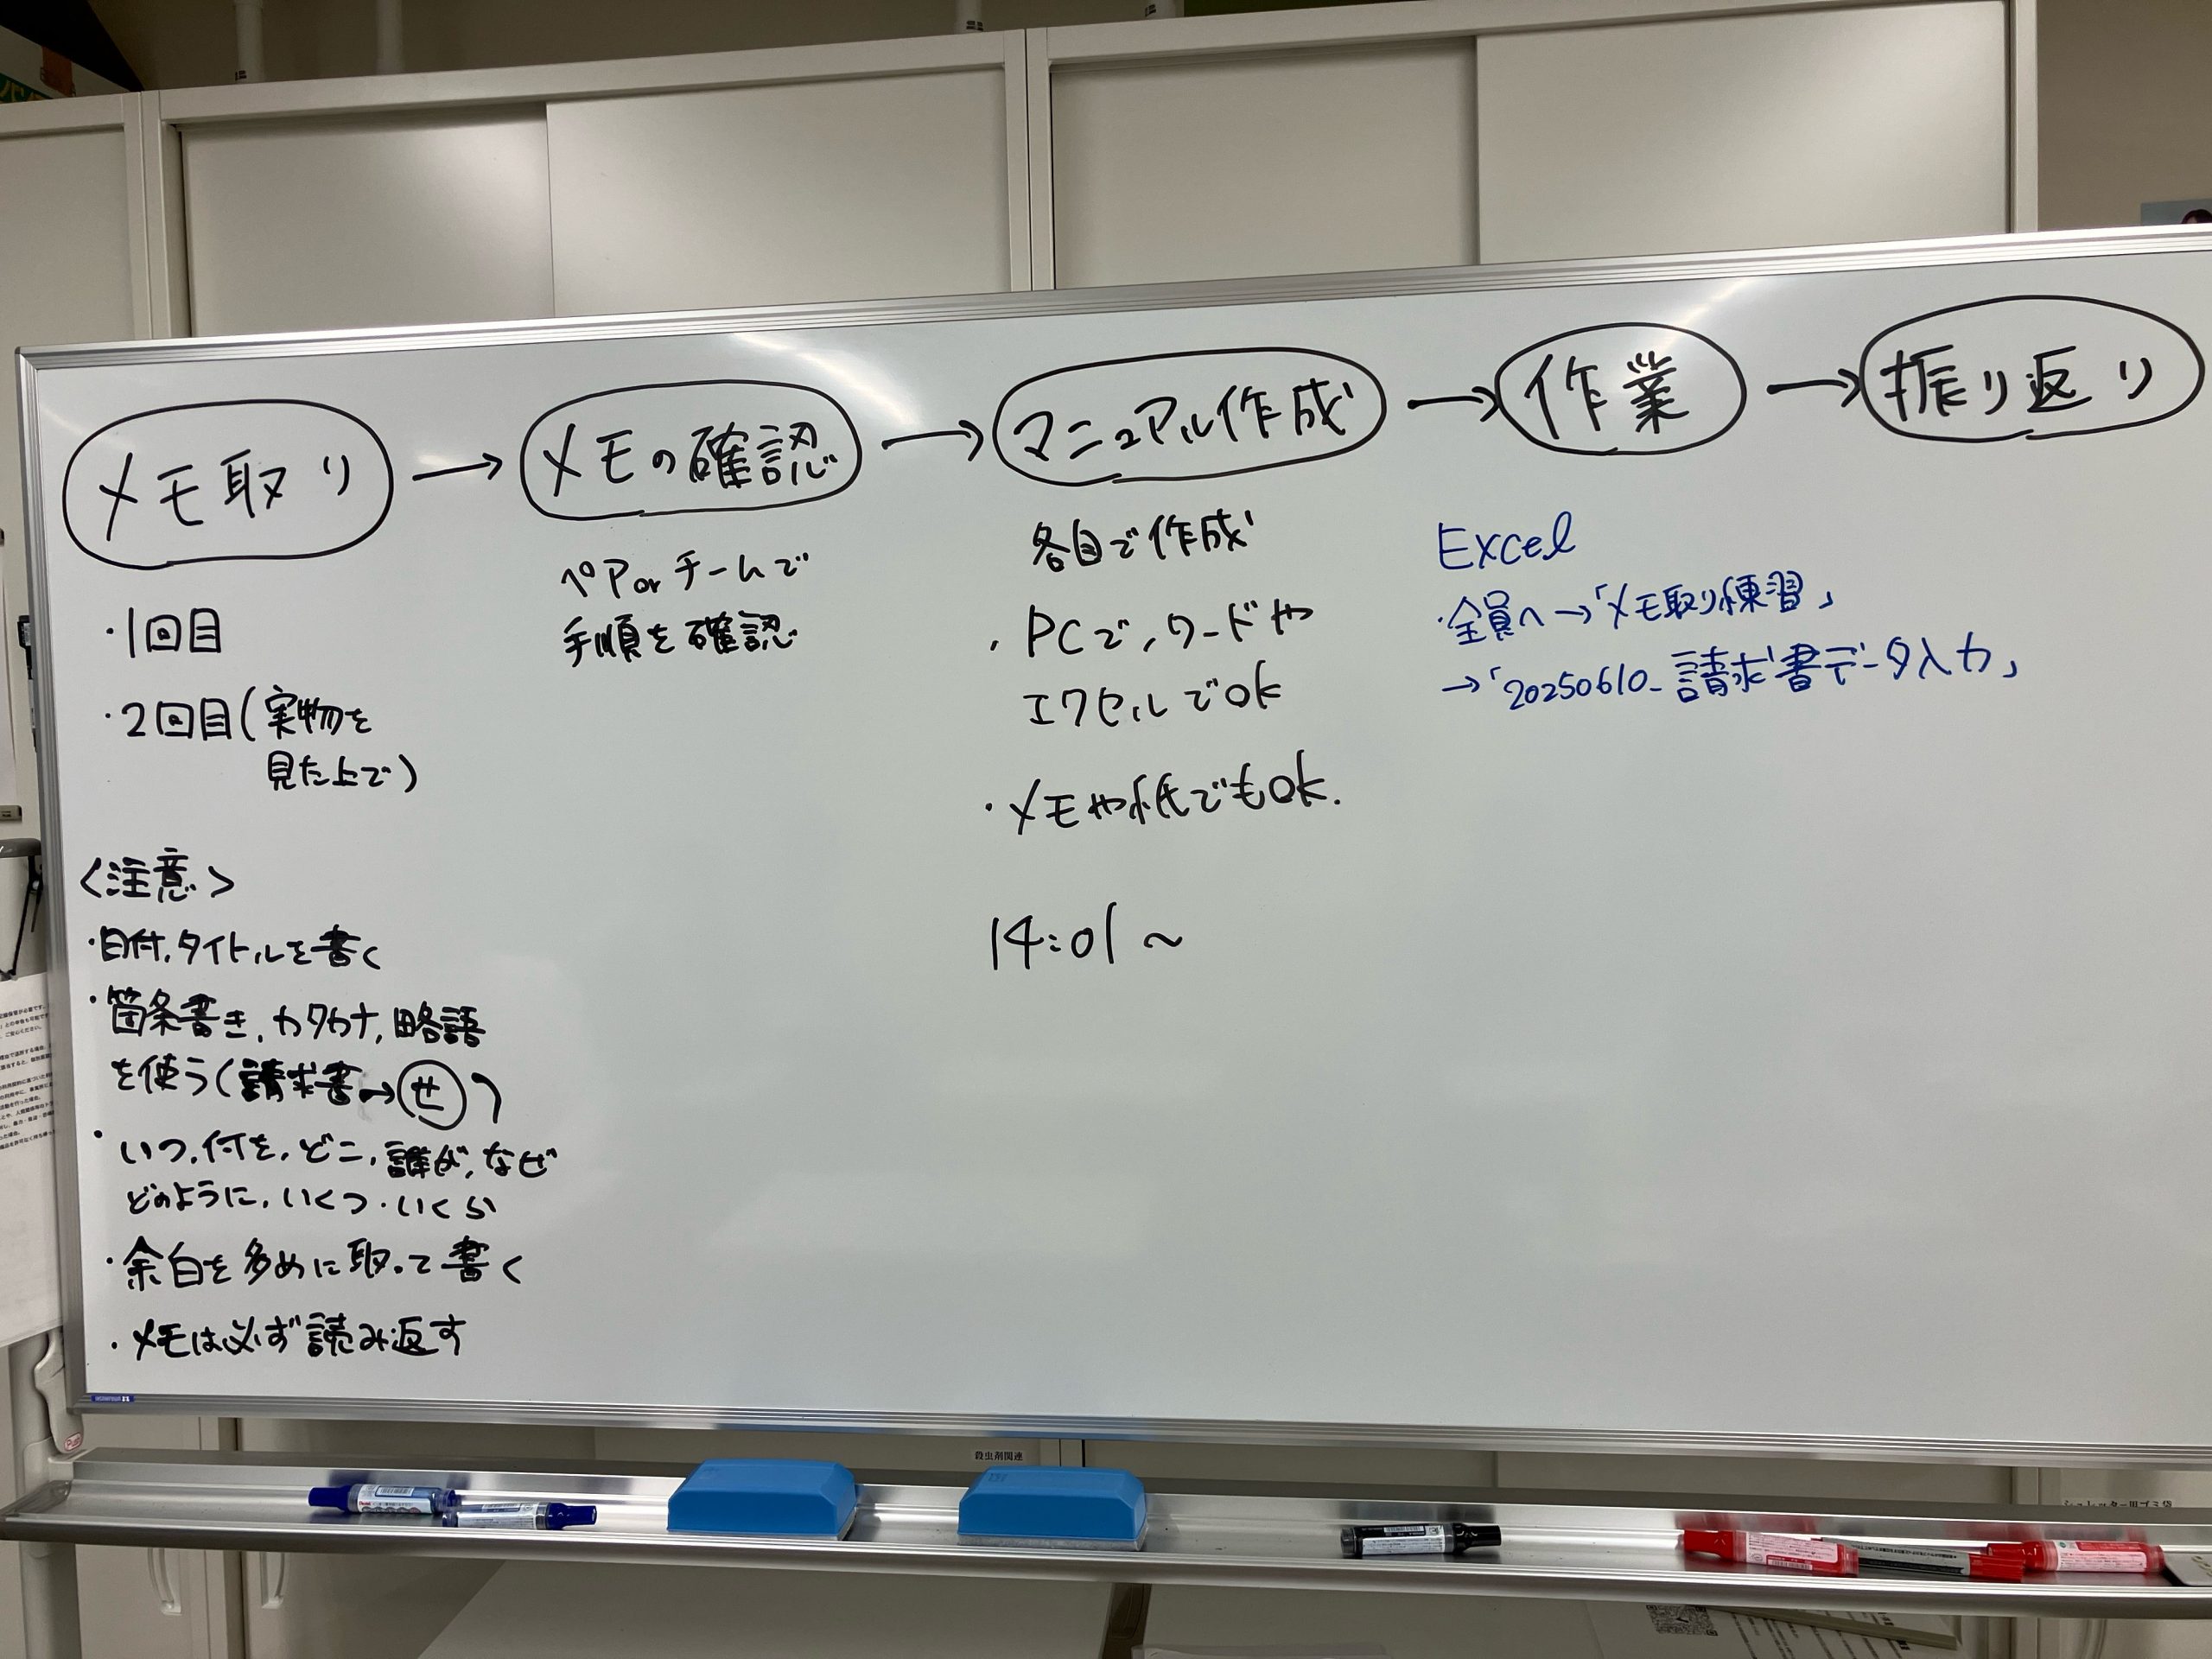 メモ取り → メモの確認 → マニュアル作成 → 作業 → 振り返り
・1回目
・2回目(実物を
見た上で)
<注意>
・日付、タイトルを書く
・箇条書き、カタカナ、略語
を使う(請求書→セ)
・いつ、何を、どこ、誰が、なぜ
どのように、いくつ・いくら
・余白を多めに取って書く
・メモは必ず読み返す
ペアorチームで
手順を確認
各自で作成
・PCで、ワードや
エクセルでOK
・メモや紙でもOK.
14:01～
Excel
・全員へ→「メモ取り練習」
→「20250610_請求書データ入力」
殺虫剤関連
シュレッダー用ゴミ袋